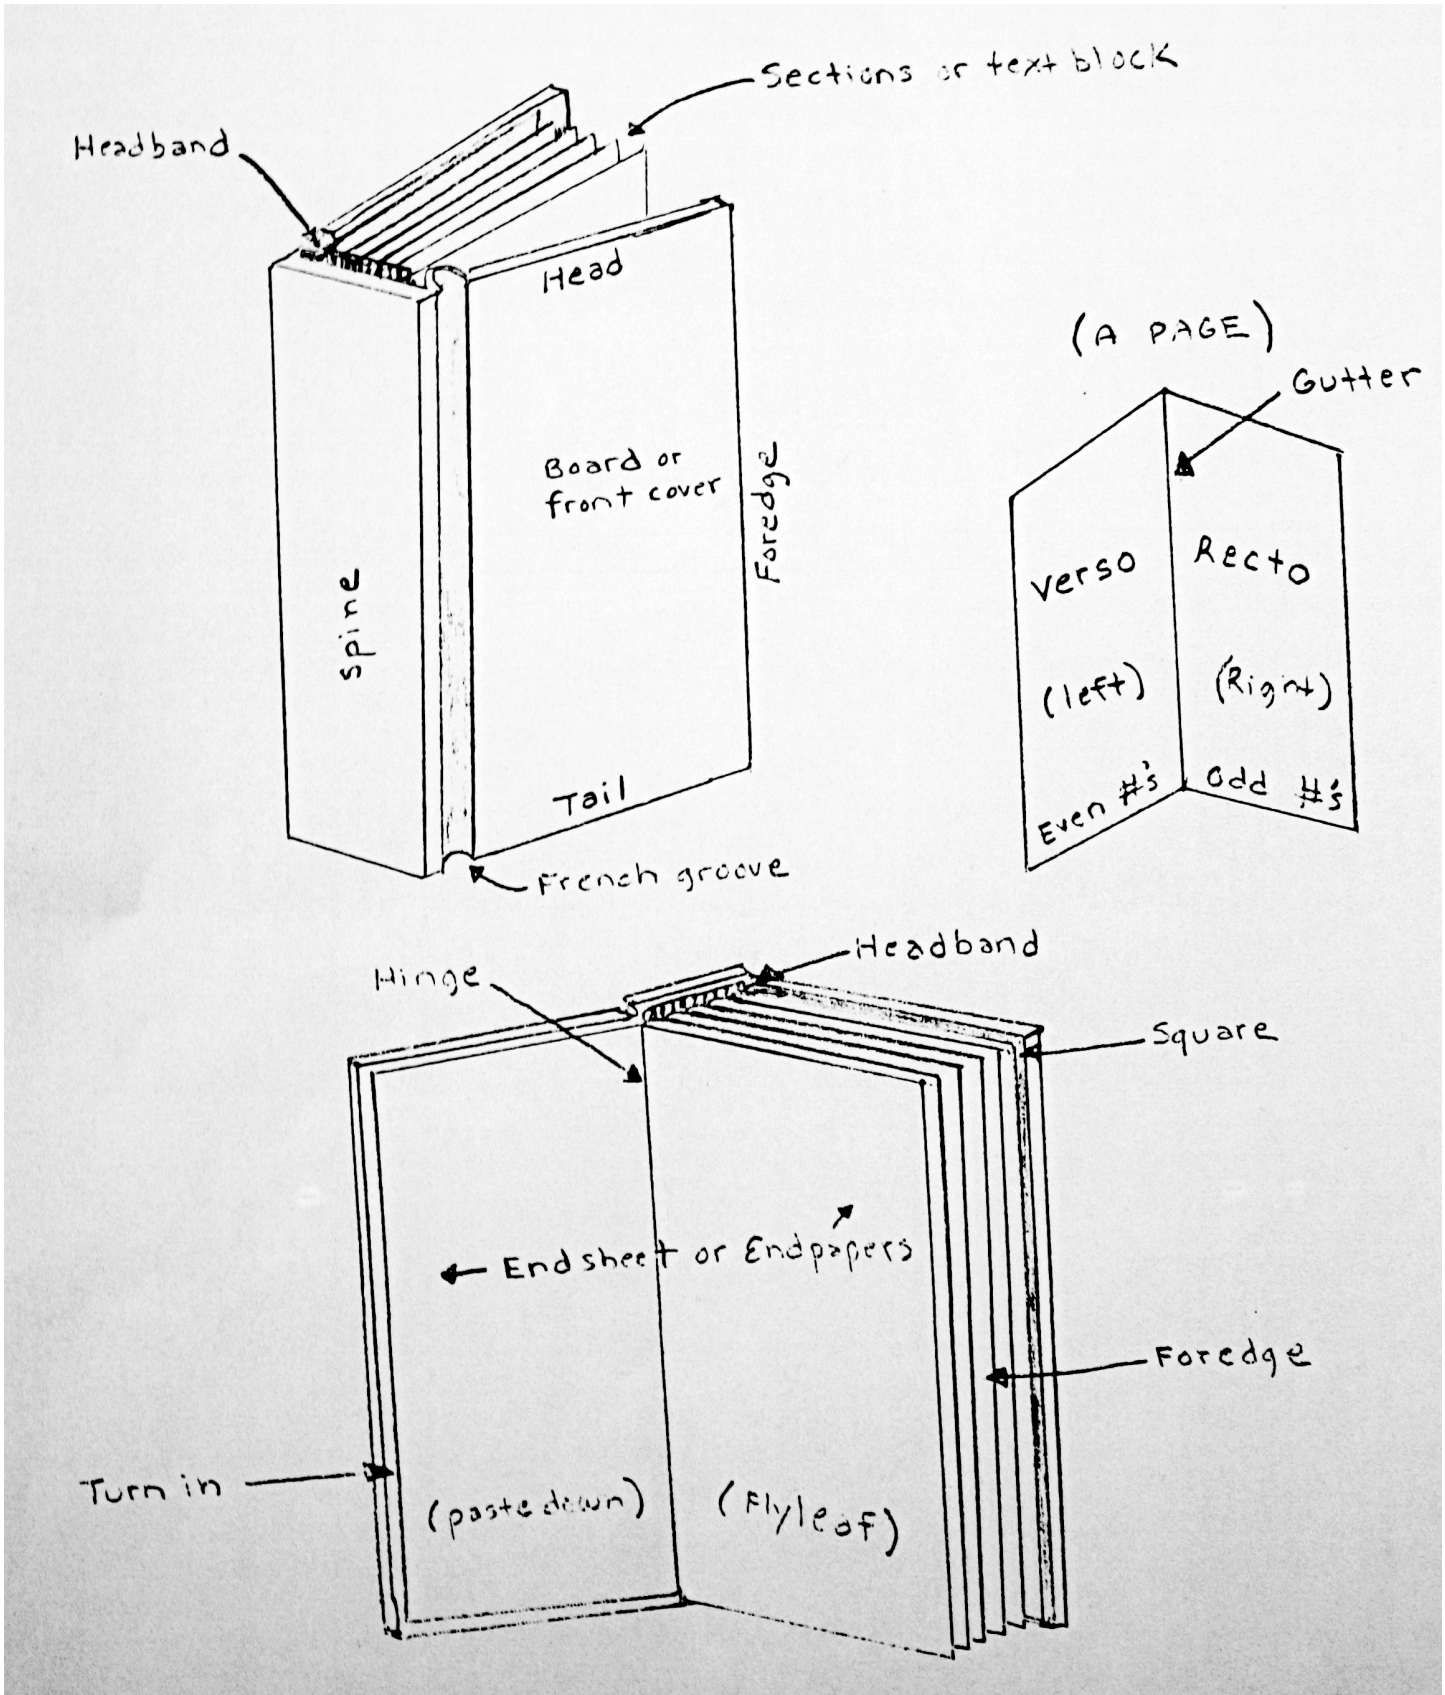 Sections or text block
Headband
Head
Board or
front cover
Foredge
Spine
Tail
French groove
(A PAGE)
Gutter
Verso
Recto
(left)
(Right)
Even #'s
Odd #'s
Headband
Hinge
Square
Endsheet or Endpapers
Foredge
Turn in
(paste down)
(Flyleaf)